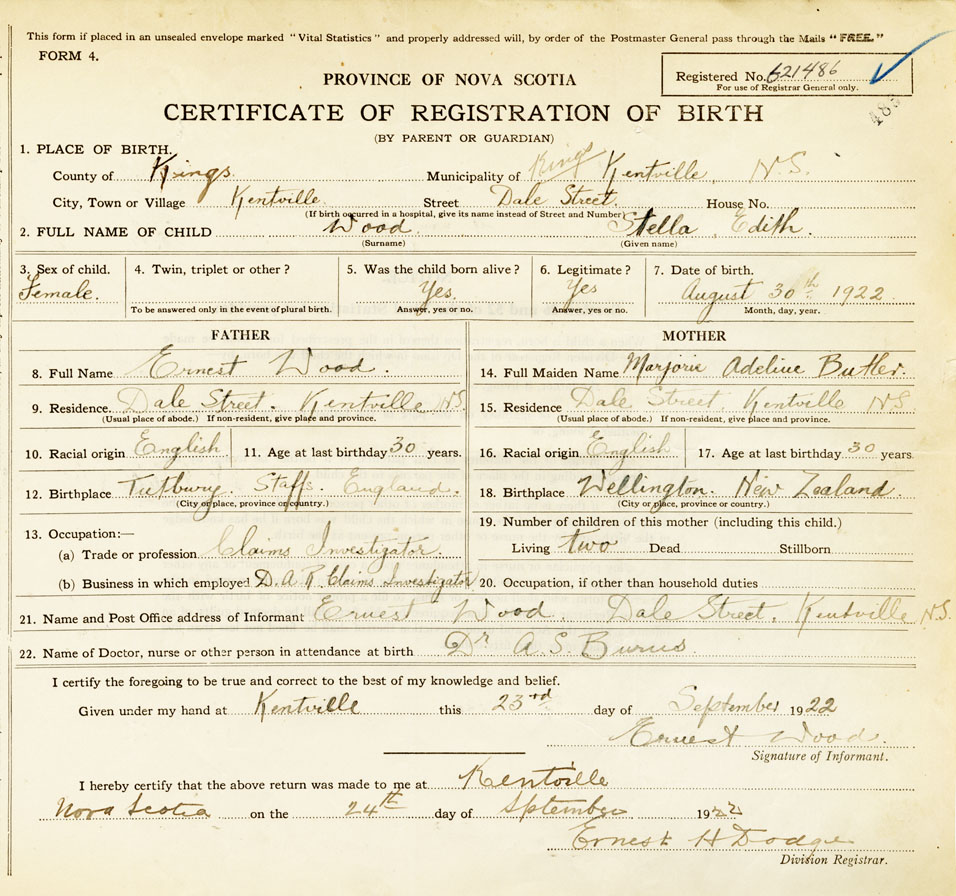 This form if placed in an unsealed envelope marked "Vital Statistics" and properly addressed will, by order of the Postmaster General pass through the Mails "FREE."
FORM 4.
Registered No. 621486
For use of Registrar General only.
PROVINCE OF NOVA SCOTIA
CERTIFICATE OF REGISTRATION OF BIRTH
(BY PARENT OR GUARDIAN)
1. PLACE OF BIRTH.
County of Kings Municipality of Kings Kentville, N.S.
City, Town or Village Kentville Street Dale Street. House No.
(If birth occurred in a hospital, give its name instead of Street and Number)
2. FULL NAME OF CHILD Wood Stella Edith.
(Surname) (Given name)
3. Sex of child. 4. Twin, triplet or other? 5. Was the child born alive? 6. Legitimate? 7. Date of birth.
Female. Yes. Yes August 30th 1922
To be answered only in the event of plural birth. Answer, yes or no. Answer, yes or no. Month, day, year.
FATHER MOTHER
8. Full Name Ernest Wood. 14. Full Maiden Name Marjorie Adeline Butler.
9. Residence. Dale Street. Kentville NS 15. Residence Dale Street, Kentville NS
(Usual place of abode.) If non-resident, give place and province. (Usual place of abode.) If non-resident, give place and province.
10. Racial origin English 11. Age at last birthday 30 years. 16. Racial origin English 17. Age at last birthday 30 years
12. Birthplace Tutbury. Staffs. England. 18. Birthplace Wellington. New Zealand.
(City or place, province or country.) (City or place, province or country.)
13. Occupation:— 19. Number of children of this mother (including this child.)
(a) Trade or profession Claims Investigator. Living two Dead Stillborn
(b) Business in which employed D.A.R Claims Investigator 20. Occupation, if other than household duties
21. Name and Post Office address of Informant Ernest Wood. Dale Street, Kentville N.S.
22. Name of Doctor, nurse or other person in attendance at birth Dr A.S. Burns.
I certify the foregoing to be true and correct to the best of my knowledge and belief.
Given under my hand at Kentville this 23rd day of September 1922
Ernest Wood.
Signature of Informant.
I hereby certify that the above return was made to me at Kentville
Nova Scotia on the 24th day of September 1922
Ernest H Dodge
Division Registrar.